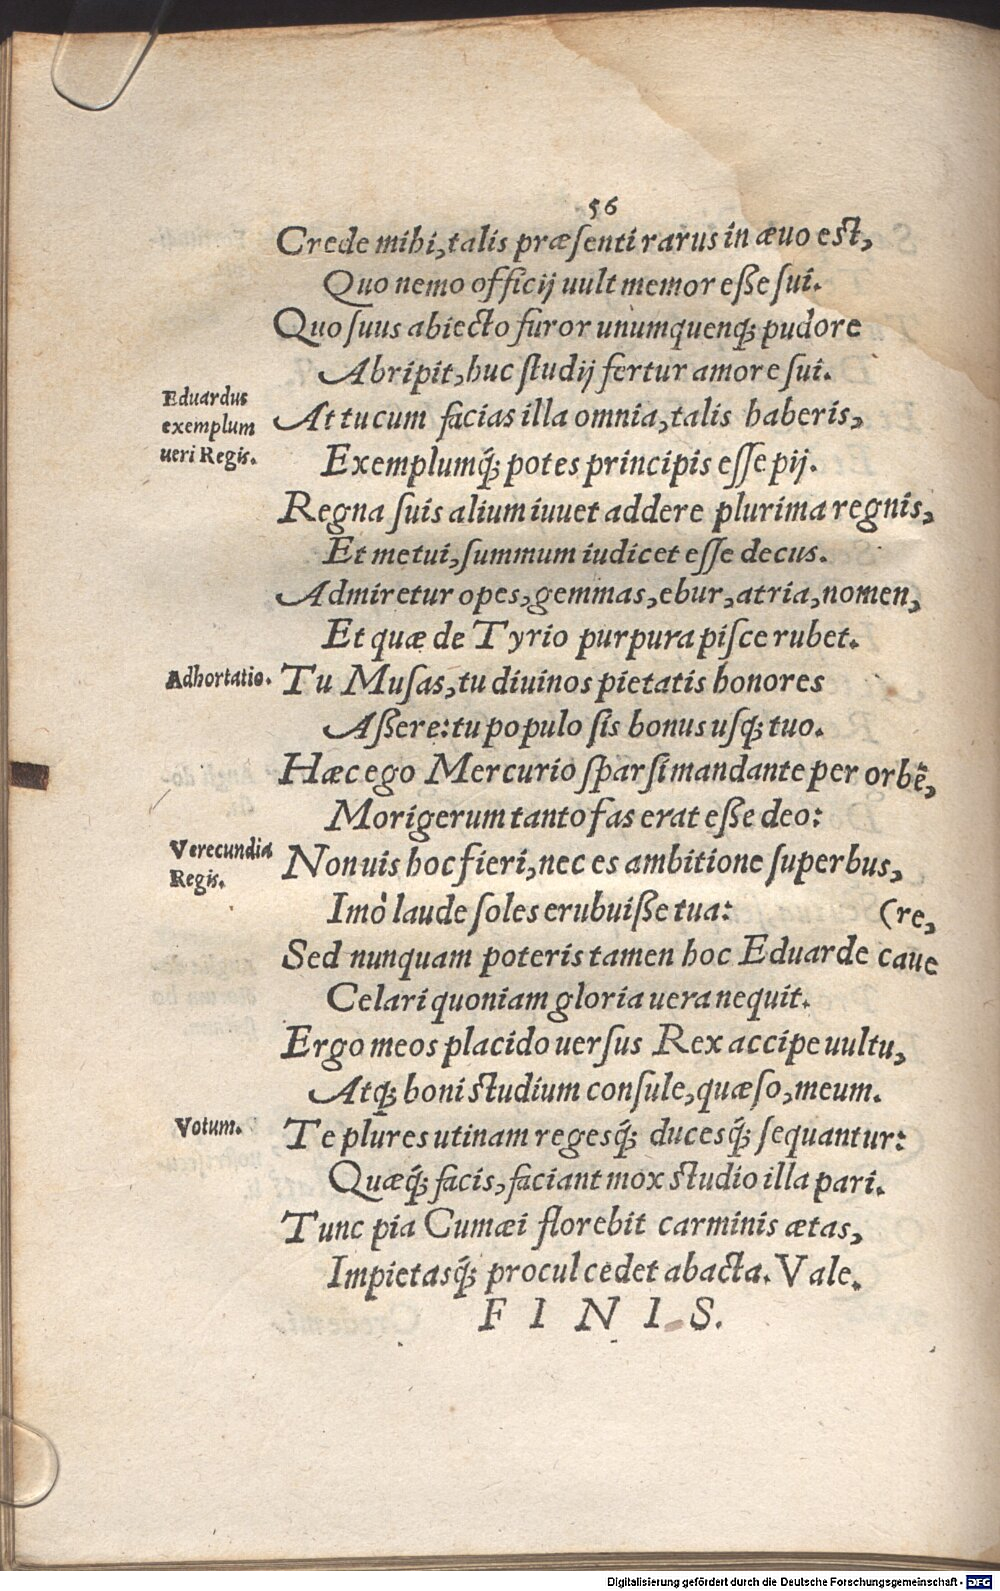 56
Crede mihi, talis præsenti rarus in ævo est,
Quo nemo officij uult memor eße sui.
Quo suus abiecto furor unumquenq; pudore
Abripit, huc studij fertur amore sui.
Eduardus
exemplum
ueri Regis.
At tu cum facias illa omnia, talis haberis,
Exemplumq́; potes principis esse pij.
Regna suis alium iuuet addere plurima regnis,
Et metui, summum iudicet esse decus.
Admiretur opes, gemmas, ebur, atria, nomen,
Et quæ de Tyrio purpura pisce rubet.
Adhortatio.
Tu Musas, tu diuinos pietatis honores
Aßere: tu populo sis bonus usq; tuo.
Hæc ego Mercurio sparsi mandante per orbē,
Morigerum tanto fas erat eße deo:
Verecundia
Regis.
Non uis hoc fieri, nec es ambitione superbus,
Imò laude soles erubuiße tua:
(re,
Sed nunquam poteris tamen hoc Eduarde caue
Celari quoniam gloria uera nequit.
Ergo meos placido uersus Rex accipe uultu,
Atq; boni studium consule, quæso, meum.
Votum.
Te plures utinam regesq́; ducesq́; sequantur:
Quæq́; facis, faciant mox studio illa pari.
Tunc pia Cumæi florebit carminis ætas,
Impietasq́; procul cedet abacta. Vale.
FINIS.
Digitalisierung gefördert durch die Deutsche Forschungsgemeinschaft - DFG